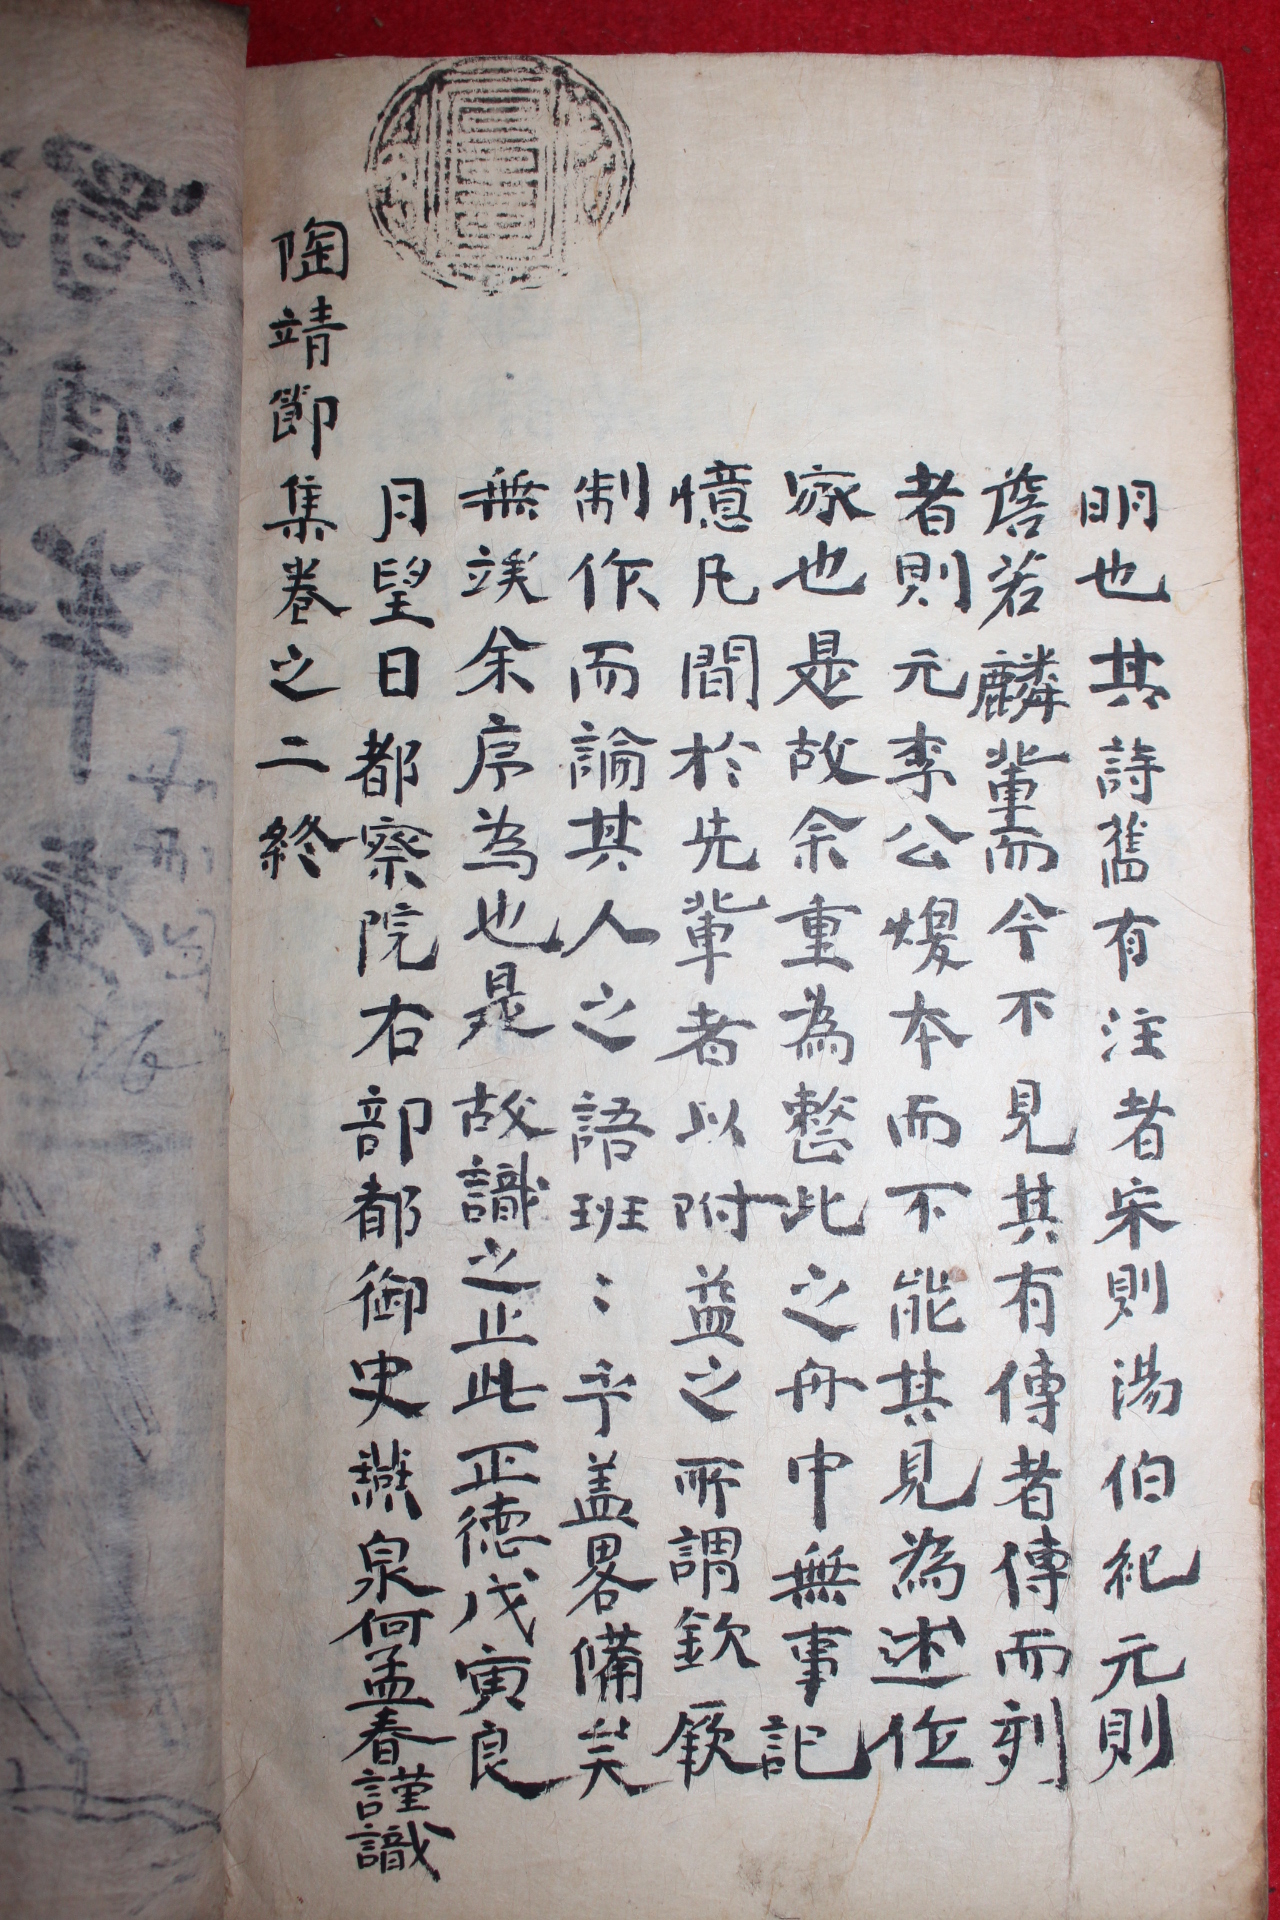 明也其詩舊有注者宋則湯伯紀元則
詹若麟輩而今不見其有傳者傳而刻
者則元李公煥本而不能其見為述作
家也是故余重為整此之舟中無事記
憶凡間於先輩者以附益之所謂欽厥
制作而論其人之語班〻乎盖畧備矣
無竢余序為也是故識之止此正德戊寅良
月望日都察院右部都御史燕泉何孟春謹識
陶靖節集卷之二終